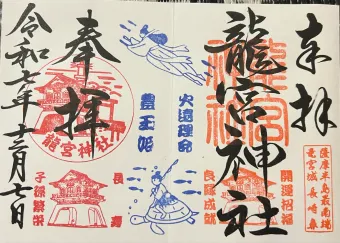 奉拝
龍宮神社
薩摩半島最南端
竜宮城長崎鼻
開運招福
良縁成就
火遠理命
豊玉姫
奉拝
龍宮神社
長寿
子孫繁栄
令和七年十二月七日